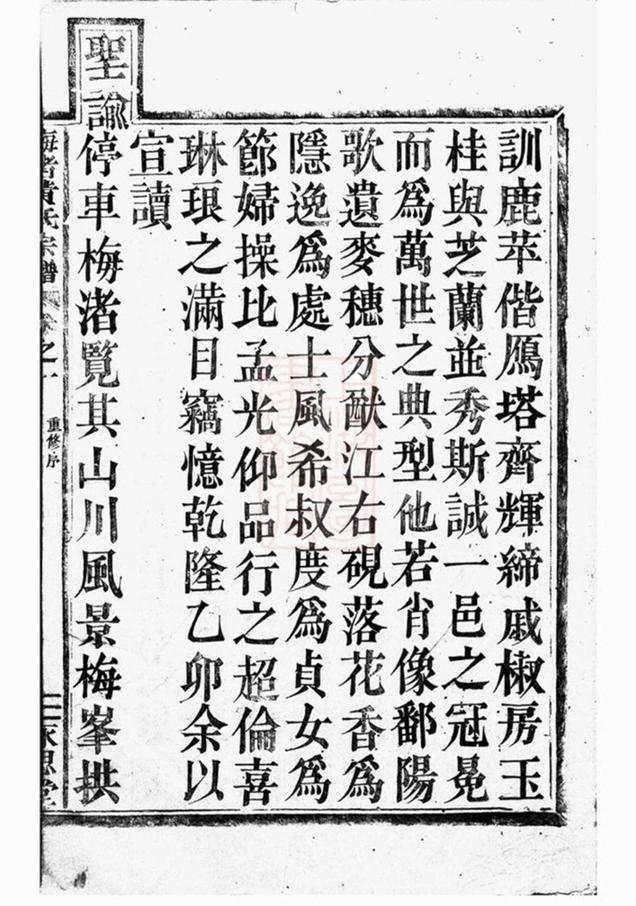 訓鹿苹偕鴈塔齊輝締戚椒房玉
桂與芝蘭並秀斯誠一邑之冠冕
而爲萬世之典型他若肖像鄱陽
歌遺麥穗分猷江右硯落花香爲
隱逸爲處士風希叔度爲貞女爲
節婦操比孟光仰品行之超倫喜
琳琅之滿目竊憶乾隆乙卯余以
宣讀
聖諭
停車梅渚覽其山川風景梅峯拱
梅渚黄氏宗譜 卷之一
重修序
永思堂